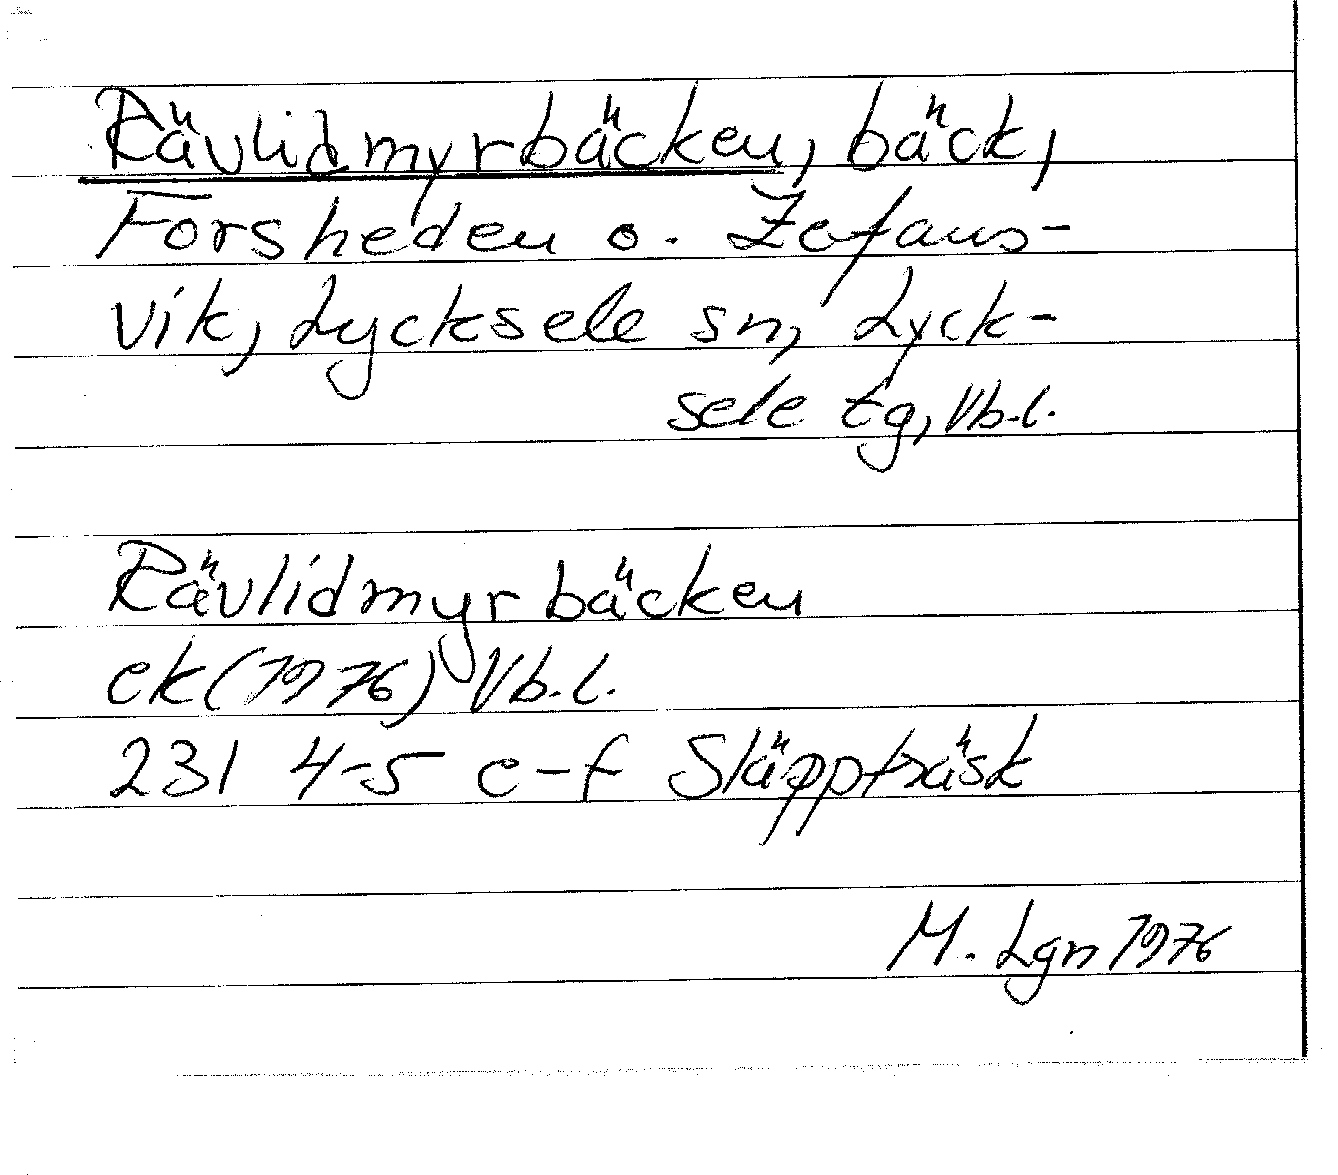 Rävlidmyrbäcken, bäck,
Forsheden o. Zefans-
vik, Lycksele sn, Lyck-
sele tg, Vb.l.
Rävlidmyrbäcken
ek (1976) Vb.l.
231 4-5 e-f Släppträsk
M. Lgn 1976